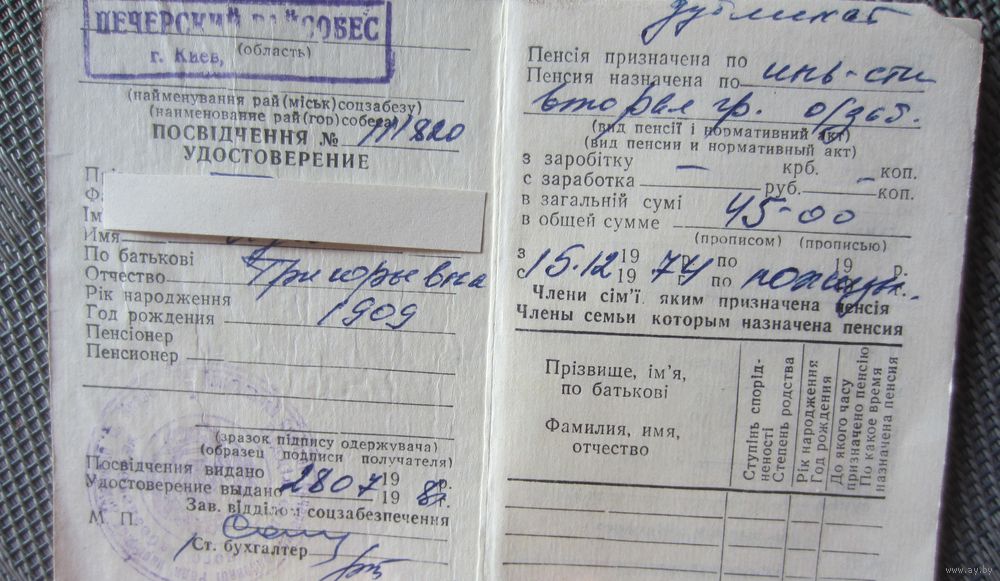 ПЕЧЕРСКИЙ РАЙСОБЕС
г. Киев,
(область)
(найменування рай(міськ)соцзабезу)
(наименование рай(гор)собеса)
ПОСВІДЧЕННЯ №
УДОСТОВЕРЕНИЕ
111820
Ім
Имя
По батькові
Отчество
Григорьевна
Рік народження
Год рождения
1909
Пенсіонер
Пенсионер
(зразок підпису одержувача)
(образец подписи получателя)
Посвідчення видано 19 р.
Удостоверение выдано 19 г.
2807 8
Зав. відділом соцзабезпечення
М. П.
Ст. бухгалтер
дубликат
Пенсія призначена по
Пенсия назначена по
инв-сти
второй гр.
(вид пенсії і нормативний акт)
(вид пенсии и нормативный акт)
з заробітку — крб. — коп.
с заработка руб. коп.
в загальній сумі
в общей сумме
45-00
(прописом) (прописью)
з 19 по 19 р.
с 19 г. по
15.12 74 пожизн.
Члени сім’ї яким призначена пенсія
Члены семьи которым назначена пенсия
Прізвище, ім’я,
по батькові
Фамилия, имя,
отчество
Ступінь спорід-
неності
Степень родства
Рік народження
Год рождения
До якого часу
призначено пенсію
По какое время
назначена пенсия
www.ay.by